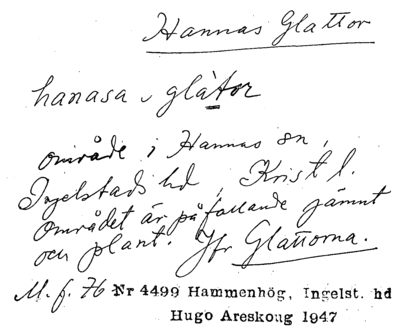 Hannas Glattor
hanasa glàtor
område i Hannas sn,
Ingelstads hd, Krist l.
Området är påfallande jämnt
och plant. Jfr Glattorna.
M. f. 76 Nr 4499 Hammenhög, Ingelst. hd
Hugo Areskoug 1947